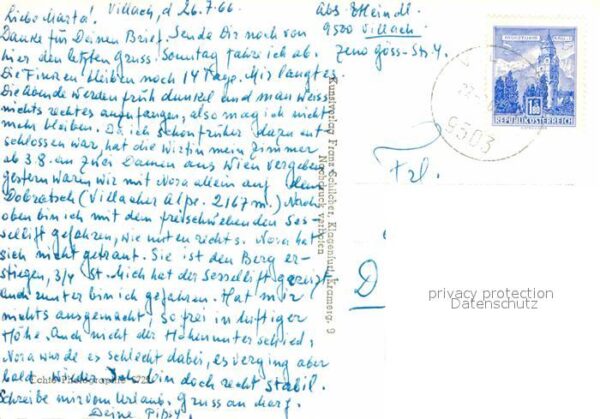 Liebe Marta! Villach, d 26.7.66
Danke für Deinen Brief. Sende Dir noch von
hier den letzten Gruss. Sonntag fahre ich ab.
Die Finzen bleiben noch 14 Tage. Mir langt es
Die Abende werden früh dunkel und man weiss
nichts rechtes anzufangen, also mag ich nicht
mehr bleiben. Da ich schon früher dazu ent
schlossen war, hat die Wirtin mein Zimmer
ab 3.8. an zwei Damen aus Wien vergeben
gestern waren wir mit Nora allein auf dem
Dobratsch (Villacher Alpe. 2167 m.) Nach
oben bin ich mit dem freischwebenden Ses-
sellift gefahren, wie unten rechts. Nora hat
sich nicht getraut. Sie ist den Berg er-
stiegen, 3/4 St. Mich hat der Sessellift gereizt
auch runter bin ich gefahren. Hat mir
nichts ausgemacht, so frei in luftiger
Höhe. Auch nicht der Höhenunterschied,
Nora wurde es schlecht dabei, es verging aber
bald wieder. Ich bin doch recht stabil.
Schreibe mir vom Urlaub. Gruss an
Deine
Echte Photographie
Abs.
9500 Villach
Zeno Goss-Str. 4
Kunstverlag Franz Schilcher, Klagenfurt, Kramerg. 9
Nachdruck verboten
REPUBLIK ÖSTERREICH
9503
Frl.
D
privacy protection
Datenschutz